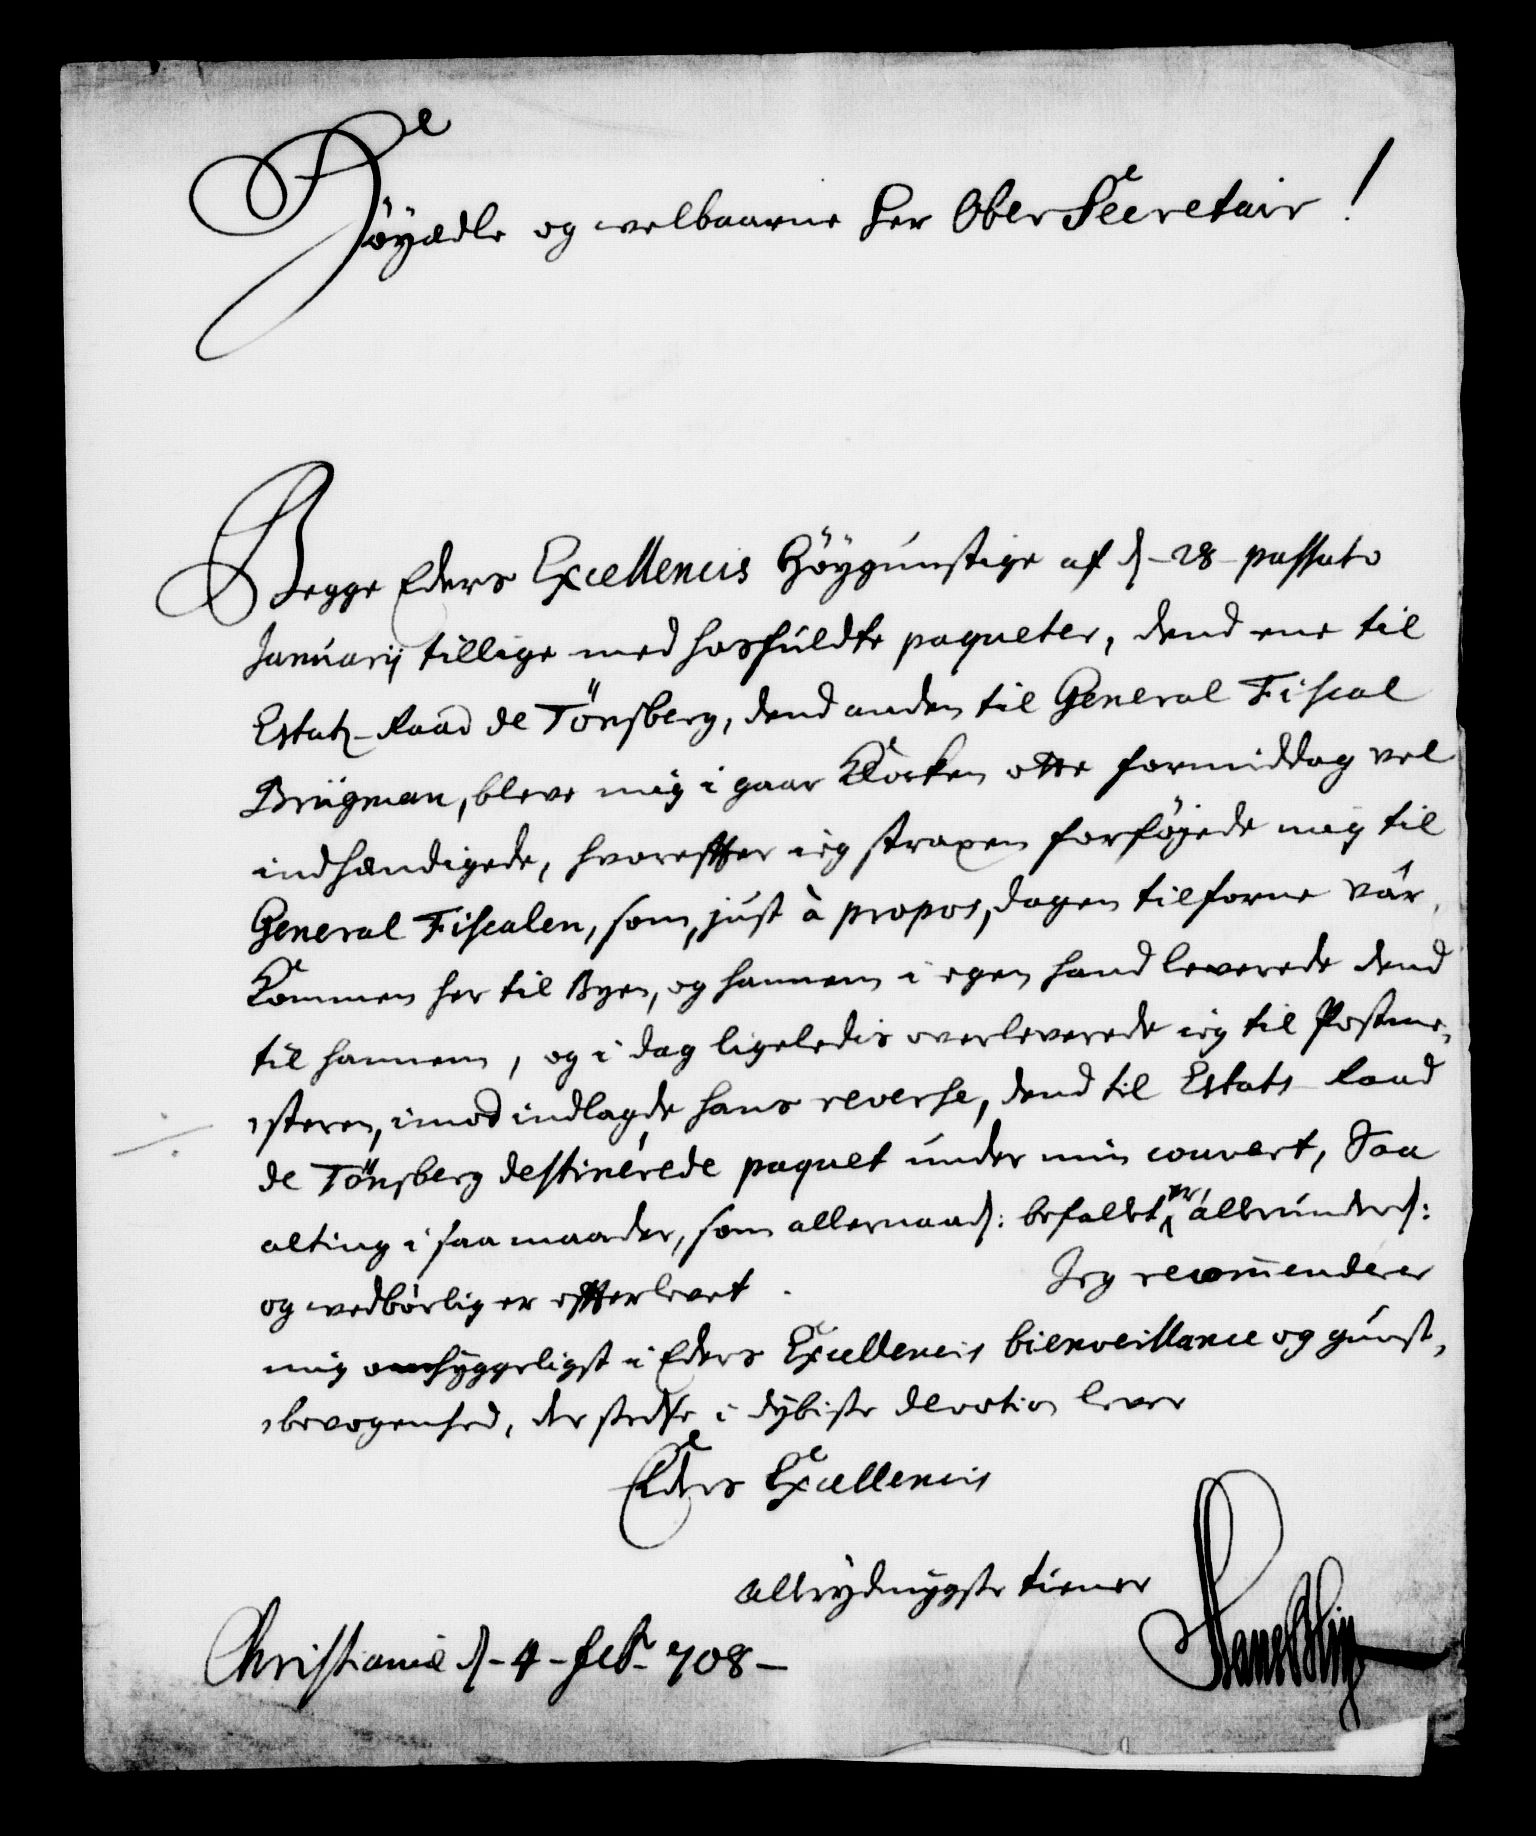 Høyædle og welbaarne Her Ober Secretair!
Begge Eders Excellencis Höÿgünstige af d. 28 passato
Januarij tillige med hosfuldte paqueter, dend ene til
Estatz-Raad de Tönsberg, dend anden til General Fiscal
Brügman, bleve mig i gaar Klocken otte formiddag vel
indhændigede, hvoreffter ieg straxen forföjede mig til
General Fiscalen, som, just à propos, dagen tilforne vár
Kommen her til Byen, og hannem i egen haand leverede dend
til hannem, og i dag ligeledis overleverede ieg til Postme-
steren, imod indlagde hans reverse, dend til Estats Raad
de Tönsberg destinerede paquet under min couvert, Saa
alting i saa maader, som allernaad: befallet er, allerunderd:
og wedbørlig er effterlevet. Jeg recommenderer
mig omhyggeligst i Eders Excellencis bienveillance og gunst-
bevogenhed, der stedse i dybiste devotion lever
Eders Excellencis
allerydmygste tiener
Christiania d. 4 Feb. 708